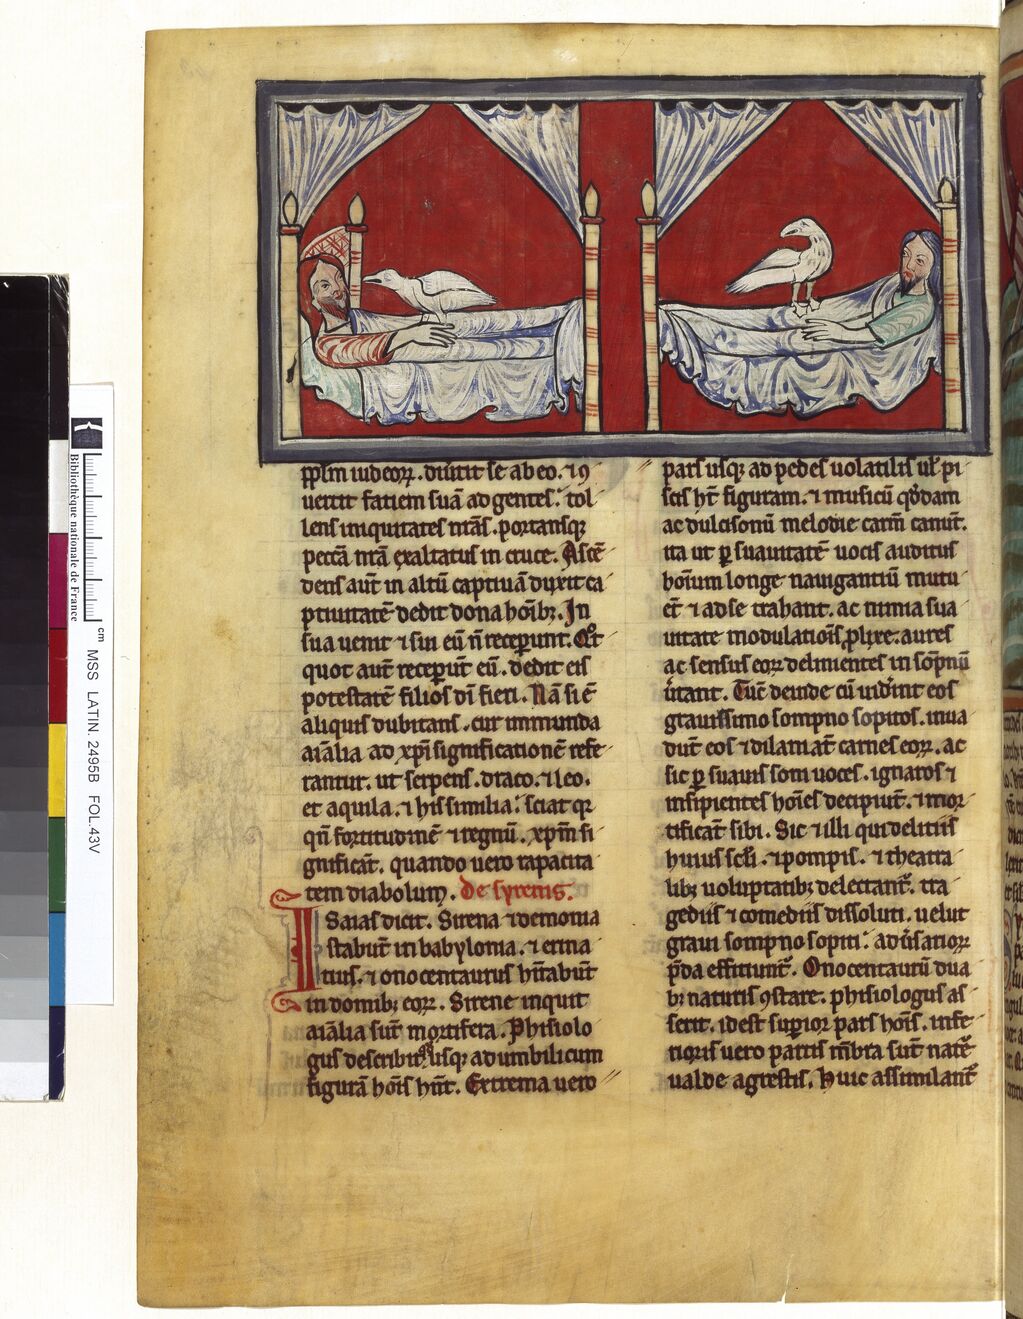 Bibliothèque nationale de France
cm
MSS LATIN. 2495B FOL.43V
pplm iudeoꝝ. diuitit se ab eo. ⁊ ꝯ
uertit faciem suã ad gentes. tol
lens iniquitates nr̃as. portansq̧
peccã nr̃a exaltatus in cruce. Ascẽ
dens aut̃ in altũ captiuã duxit ca
ptiuitatẽ dedit dona hõibꝫ. In
sua uenit ⁊ sui eũ ñ receperunt. Q̃t
quot aut̃ receperũt eũ. dedit eis
potestatẽ filios di fieri. Nã si ẽ
aliquis dubitans. cur immunda
aĩalia ad xp̃i significationẽ refe
rantur. ut serpens. draco. ⁊ leo.
et aquila. ⁊ his similia. sciat qꝛ
qñ fortitudinẽ ⁊ regnũ. xp̃m si
gnificãt. quando uero rapacita
tem diabolum. de syrenis.
ISaias dicit. Sirena ⁊ demonia
stabũt in babylonia. ⁊ erina
tius. ⁊ onocentaurus hĩtabũt
in domibꝫ eoꝝ. Sirene inquit
aĩalia sũt mortifera. Phisiolo
gus describit usq̧ ad umbilicum
figurã hõis hñt. Extrema uero
pars usq̧ ad pedes uolatilis uł pi
scis hñt figuram. ⁊ musicũ qͦdam
ac dulcisonũ melodie carm̃ canũt.
ita ut ꝑ suauitatẽ uocis auditus
hoĩum longe nauigantiũ mutu
et̃ ⁊ ad se trahant. ac nimia sua
uitate modulatiõis ꝓlixe. aures
ac sensus eoꝝ delinientes in sõpnũ
ũtant. Tũc deinde cũ uid̃int eos
grauissimo sompno sopitos. inua
dũt eos ⁊ dilaniãt carnes eoꝝ. ac
sic ꝑ suauis soni uoces. ignaros ⁊
insipientes hoĩes decipiũt. ⁊ mor
tificãt sibi. Sic ⁊ illi qui delitiis
huius scłi. ⁊ pompis. ⁊ theatra
libꝫ uoluptatibꝫ delectant̃. tra
gediis ⁊ comediis dissoluti. uelut
graui sompno sopiti. adũsarioꝝ
p̃da effitiunt̃. Onocentaurũ dua
bꝫ naturis ꝯstare. phisiologus as
serit. idest superior pars hõis. infe
rioris uero partis mẽbra sũt natẽ
ualde agrestis. Huic assimilant̃